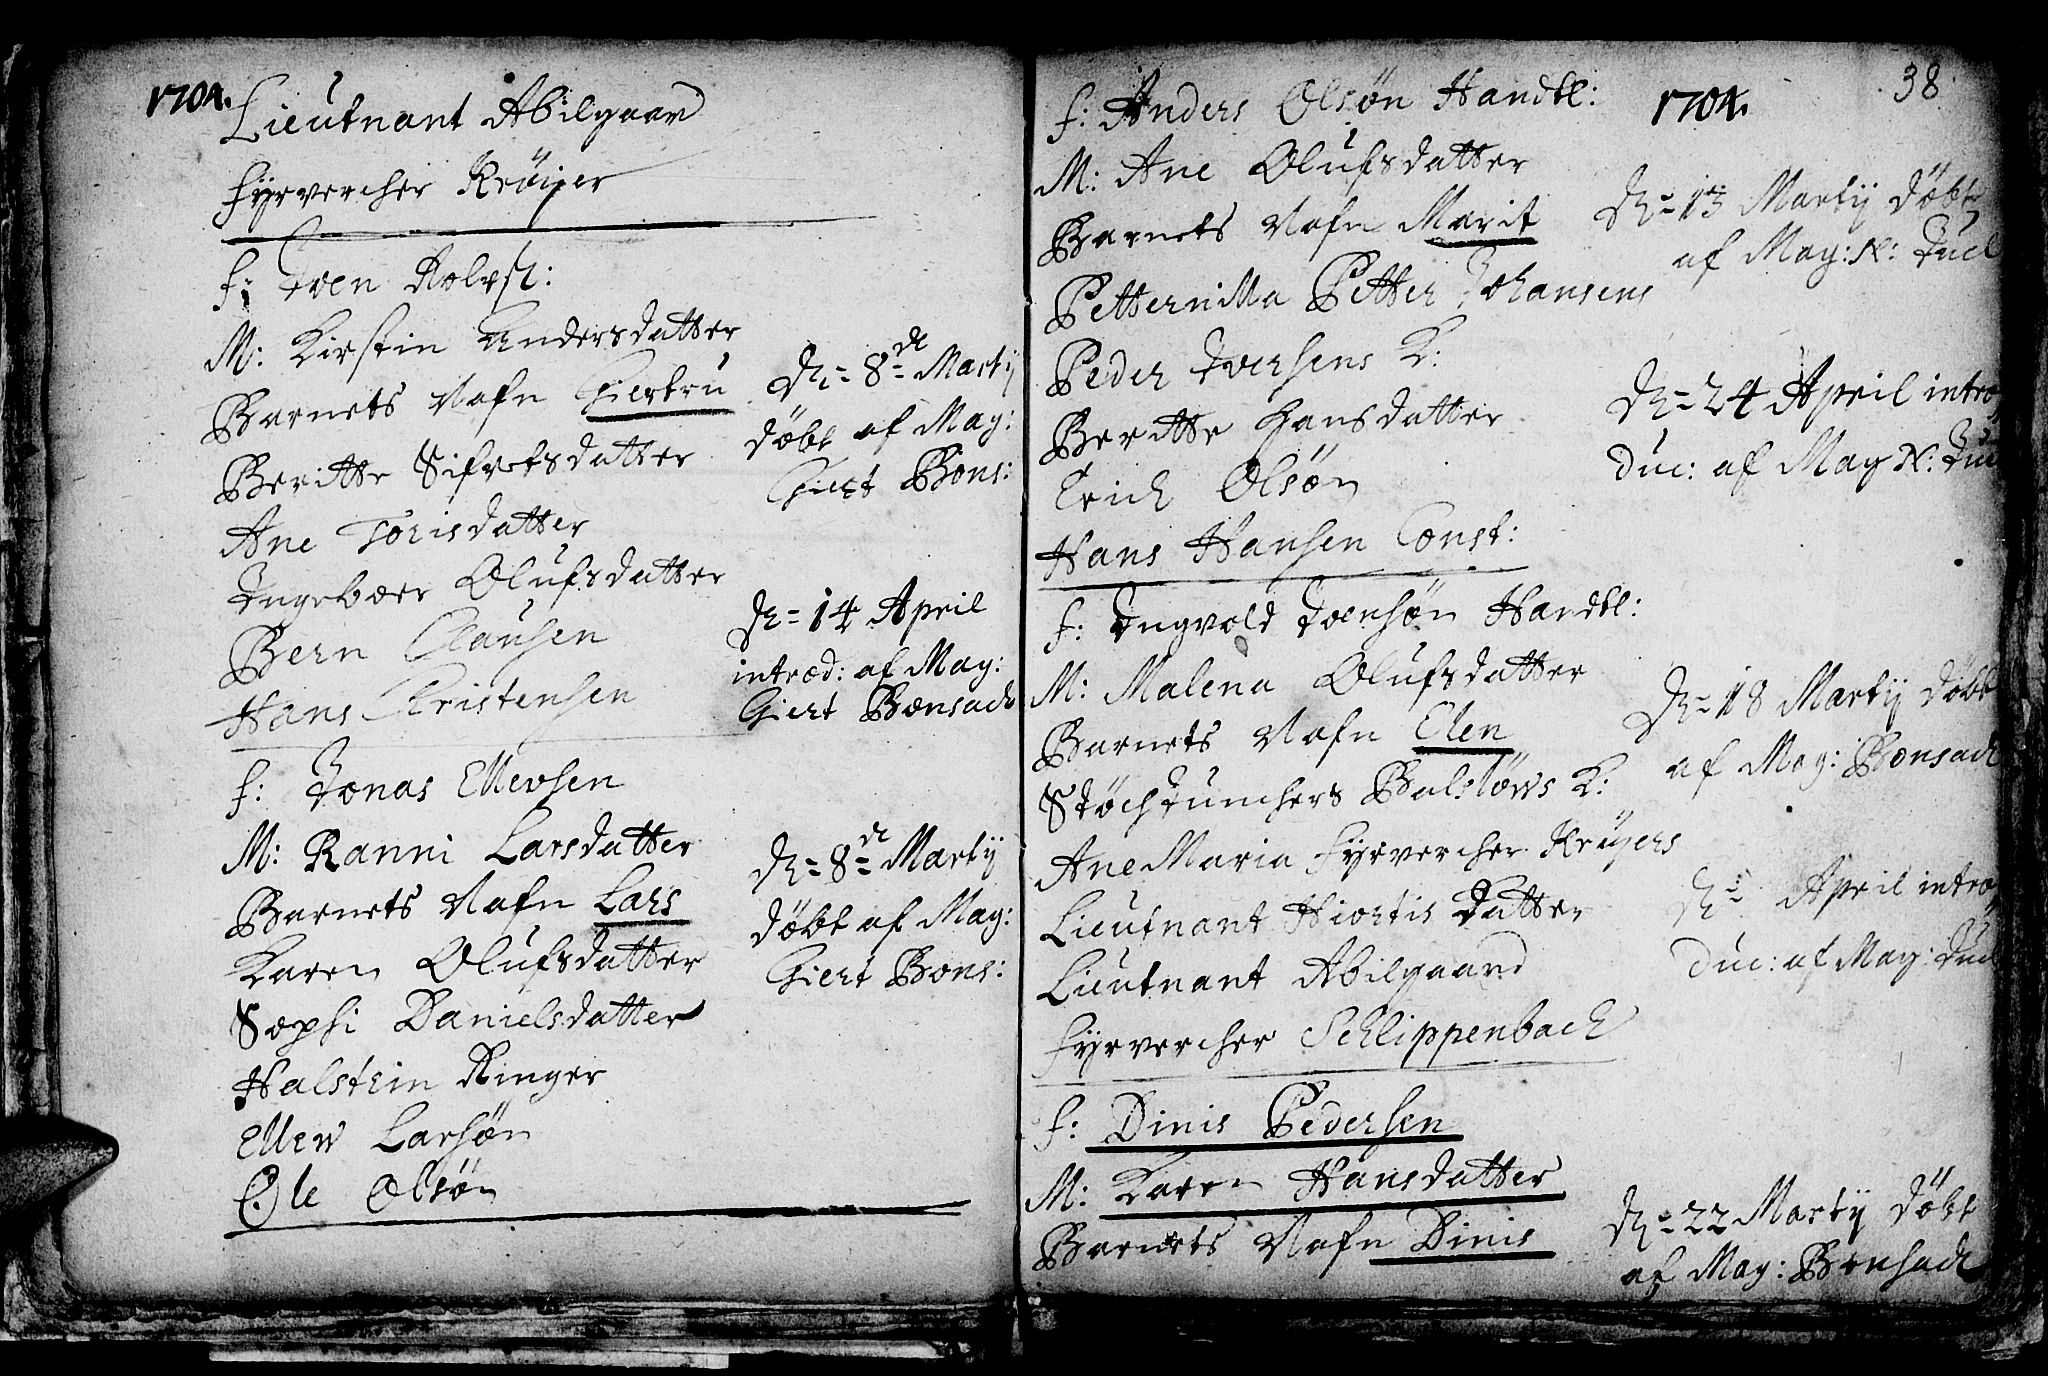 1704.
Lieutnant Abilgaar
fyrvercher Krøiyer
f: Joen Rolvsl:
M: Kirstin Andersdatter
Barnets Nafn Giertru
Beritte Sifvetsdatter
Ane Torisdatter
Ingebaer Olufsdatter
Bern Clausen
Hans Christensen
dn= 8de Martij
døbt af Mag:
Giert Bons:
dn= 14 April
introd: af Mag:
Giert Bonsach
f: Jonas Ellevsen
M: Ranni Larsdatter
Barnets Nafn Lars
Karen Olufsdatter
Sophi Danielsdatter
Halstein Ringer
Ellew Larsøn
Ole Olsøn
dn= 8de Martij
døbt af Mag:
Giert Bons:
38
1704.
f: Anders Olsøn Handtl:
M: Ane Olufsdatter
Barnets Nafn Marit
Petternilla Petter Johansens
Peder Iversens K:
Beritte Hansdatter
Erich Olsøn
Hans Hansen Const:
dn= 13 Martij døbt
af Mag: N: Juel
dn= 24 April intro
duc: af Mag N: Juel
f: Ingvold Joensøn Handtl:
M: Malena Olufsdatter
Barnets Nafn Elen
Støchjunchers Balsløws K:
Ane Maria fyrvercher Krüyers
Lieutnant Hiortis Datter
Lieutnant Abilgaard
fyrvercher Schlippenbach
dn= 18 Martij døbt
af Mag: Bonsach
dn= April intro
duc: af Mag: Juel
f: Dinis Pedersen
M: Karen Hansdatter
Barnets Nafn Dinis
dn= 22 Martij døbt
af Mag: Bonsach